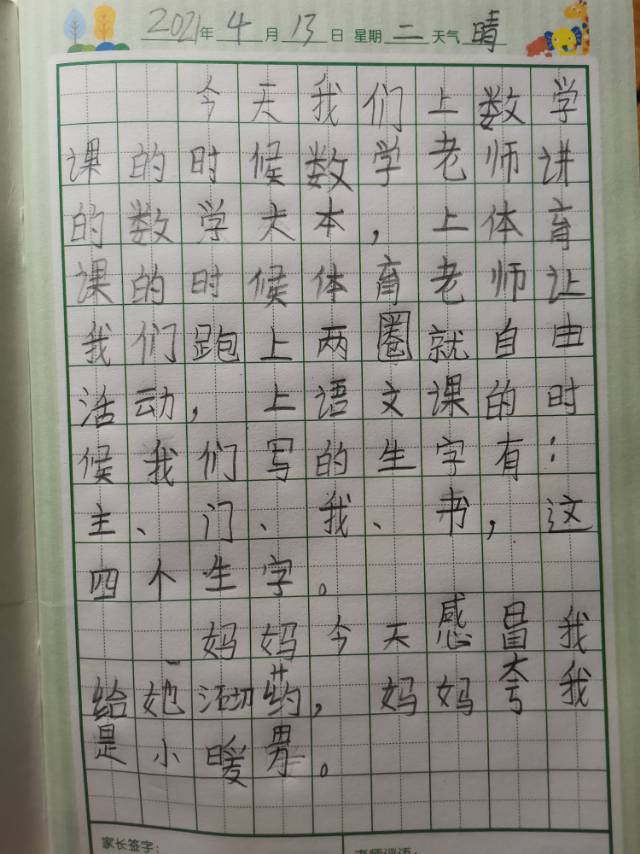 2021年4月13日 星期二 天气晴
今天我们上数学
课的时候数学老师讲
的数学大本，上体育
课的时候体育老师让
我们跑上两圈就自由
活动，上语文课的时
候我们写的生字有：
主、门、我、书，这
四个生字。
妈妈今天感冒我
给她 药，妈妈夸我
是小暖男。
家长签字：
老师评语：